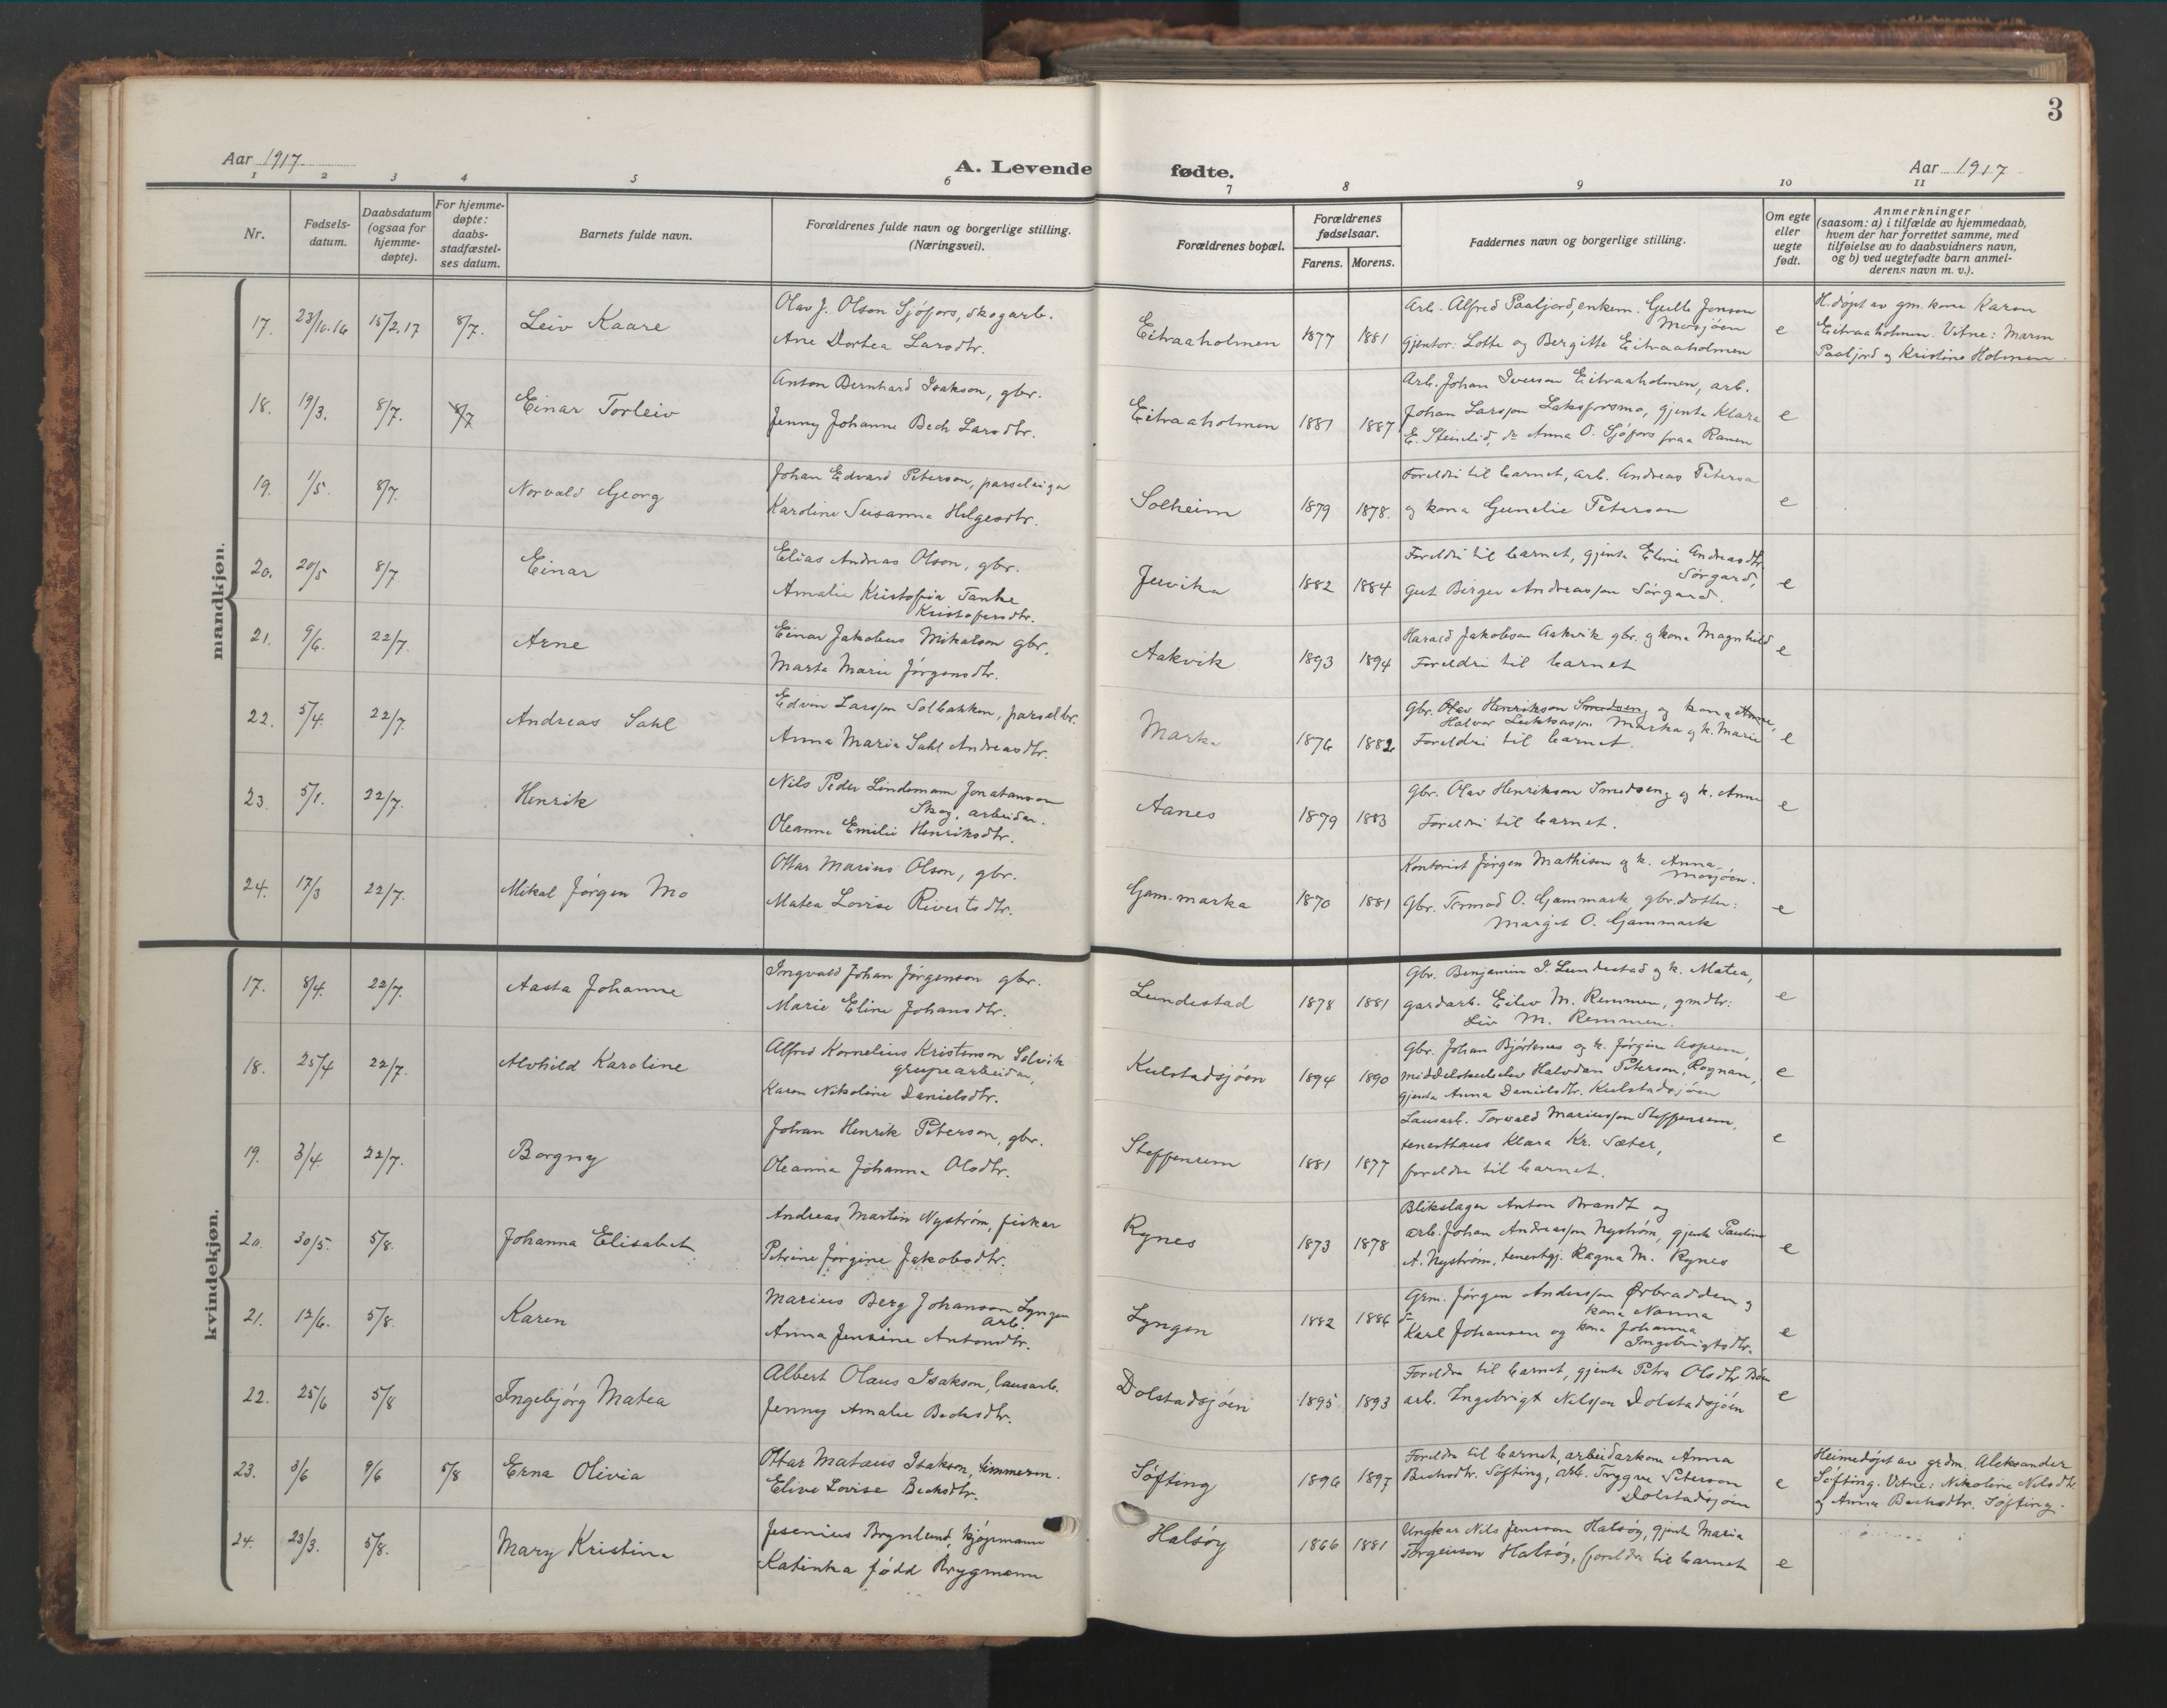 3
Aar 1917
A. Levende fødte.
Aar 1917
1 2 3 4 5 6 7 8 9 10 11
Nr.
Fødsels-
datum.
Daabsdatum
(ogsaa for
hjemme-
døpte).
For hjemme-
døpte:
daabs-
stadfæstel-
ses datum.
Barnets fulde navn.
Forældrenes fulde navn og borgerlige stilling.
(Næringsvei).
Forældrenes bopæl.
Forældrenes
fødselsaar.
Farens. Morens.
Faddernes navn og borgerlige stilling.
Om egte
eller
uegte
født.
Anmerkninger
(saasom: a) i tilfælde av hjemmedaab,
hvem der har forrettet samme, med
tilføielse av to daabsvidners navn,
og b) ved uegtefødte barn anmel-
derens navn m. v.).
mandkjøn.
17. 23/10.16 15/2.17 8/7. Leiv Kaare
Olav J. Olson Sjöfors, skogarb.
Ane Dortea Larsdtr.
Eitraaholmen 1877 1881
Arb. Alfred Paaljord, enkem. Gulle Jonson
Mosjöen
gjentor: Lotte og Bergitte Eitraaholmen
e
H.döpt av gm. kona Karen
Eitraaholmen. Vitne: Maren
Paaljord og Kristine Holmen.
18. 19/3. 8/7. 8/7 Einar Torleiv
Anton Bernhard Isakson, gbr.
Jenny Johanne Bech Larsdtr.
Eitraaholmen 1881 1887
Arb. Johan Iverson Eitraaholmen, arb.
Johan Larsson Laksforsmo, gjenta Klara
E. Steinlid, do Anna O. Sjöfors fraa Ranen
e
19. 1/5. 8/7. Norvald Georg
Johan Edvard Peterson, parseleigar
Karoline Susanna Helgesdtr.
Solheim 1879 1878.
Foreldri til barnet, arb. Andreas Peterson
og kona Gunelie Peterson
e
20. 20/5 8/7. Einar
Elias Andreas Olson, gbr.
Amalie Kristofia Tanke
Kristofersdtr.
Juvika 1882 1884
Foreldri til barnet, gjenta Eline Andreasdtr.
Sörgard,
gut Birger Andreasson Sörgard.
e
21. 9/6. 22/7. Arne
Einar Jakobus Mikalson gbr.
Marta Marie Jörgensdtr.
Aakvik 1893 1894
Harald Jakobson Aakvik gbr. og kona Magnhild
Foreldri til barnet
e
22. 5/4. 22/7. Andreas Sahl
Edvin Larsson Solbakken, parselbr.
Anna Maria Sahl Andreasdtr.
Marka 1876 1882
Gbr. Olav Henrikson Smedseng og kona Anne,
Halvor Marka og k. Marie
Foreldri til barnet.
e
23. 5/1. 22/7. Henrik
Nils Peder Lindemann Jonatanson
Skog. arbeidar.
Oleanna Emilie Henriksdtr.
Aanes 1879 1883
Gbr. Olav Henrikson Smedseng og k. Anne
Foreldri til barnet.
e
24. 17/3 22/7. Mikal Jörgen Mo
Ottar Marius Olson, gbr.
Matea Lovise Rivertsdtr.
Gam.marka 1870 1881
Kontorist Jörgen Mathisen og k. Anna
Mosjöen.
Gbr. Tormod O. Gammark, gbr.dotter:
Margit O. Gammark
e
kvindekjøn.
17. 8/4. 22/7. Aasta Johanne
Ingvald Johan Jörgenson gbr.
Marie Eline Johansdtr.
Lundestad 1878 1881
Gbr. Benjamin I. Lundestad og k. Matea,
gardarb. Eilev M. Remmen, gmdtr:
Liv M. Remmen.
e
18. 25/4 22/7. Alvhild Karoline
Alfred Kornelius Kristenson Solvik
grupearbeidar,
Karen Nikoline Danielsdtr.
Kulstadsjöen 1894 1890
Gbr. Johan Björknes og k. Jörgine Asprem,
middelskuleelev Halvdan Peterson, Rognan,
gjenta Anna Danielsdtr. Kulstadsjöen
e
19. 3/4. 22/7. Borgny
Johan Henrik Peterson, gbr.
Oleanna Johanna Olsdtr.
Steffenrem 1881 1877
Lausarb. Torvald Mariusson Steffenrem,
tenesttaus Klara Kr. Sæter,
foreldra til barnet.
e
20. 30/5. 5/8. Johanna Elisabet
Andreas Martin Nyström, fiskar
Petrine Jörgine Jakobsdtr.
Rynes 1873 1878
Blikslagar Anton Brandt og
arb. Johan Andreasson Nyström, gjenta Pauline
A. Nyström, tenestgj. Ragna M. Rynes
e
21. 12/6. 5/8. Karen
Marius Berg Johanson Lyngen
arb.
Anna Jensine Antondtr.
Lyngen 1882 1886
Grm. Jörgen Anderson Örbradden og
kona Nanna
Karl Johansen og kona Johanna
Ingebrigtsdtr.
e
22. 25/6 5/8 Ingebjörg Matea
Albert Olaus Isakson, lausarb.
Jenny Amalie Bechsdtr.
Dolstadsjöen 1895 1893
Foreldra til barnet, gjenta Petra Olsdtr
arb. Ingebrigt Nilsson Dolstadsjöen
e
23. 3/6 9/6 5/8 Erna Olivia
Ottar Matæus Isakson, timmerm.
Elive Lovise Bechsdtr.
Söfting 1896 1897
Foreldra til barnet, arbeidarkona Anna
Bechsdtr. Söfting, arb. Trygve Peterson
Dolstadsjöen
e
Heimedöpt av grdm. Aleksander
Söfting. Vitne: Nikoline Nilsdtr.
og Anna Bechsdtr. Söfting.
24. 23/3. 5/8. Mary Kristine
Jesenius Brynlund, kjöpmann
Katinka född Brygmann
Halsöy 1866 1881
Ungkar Nils Jensson Halsöy, gjenta Maria
Torgeirson Halsöy, foreldra til barnet
e